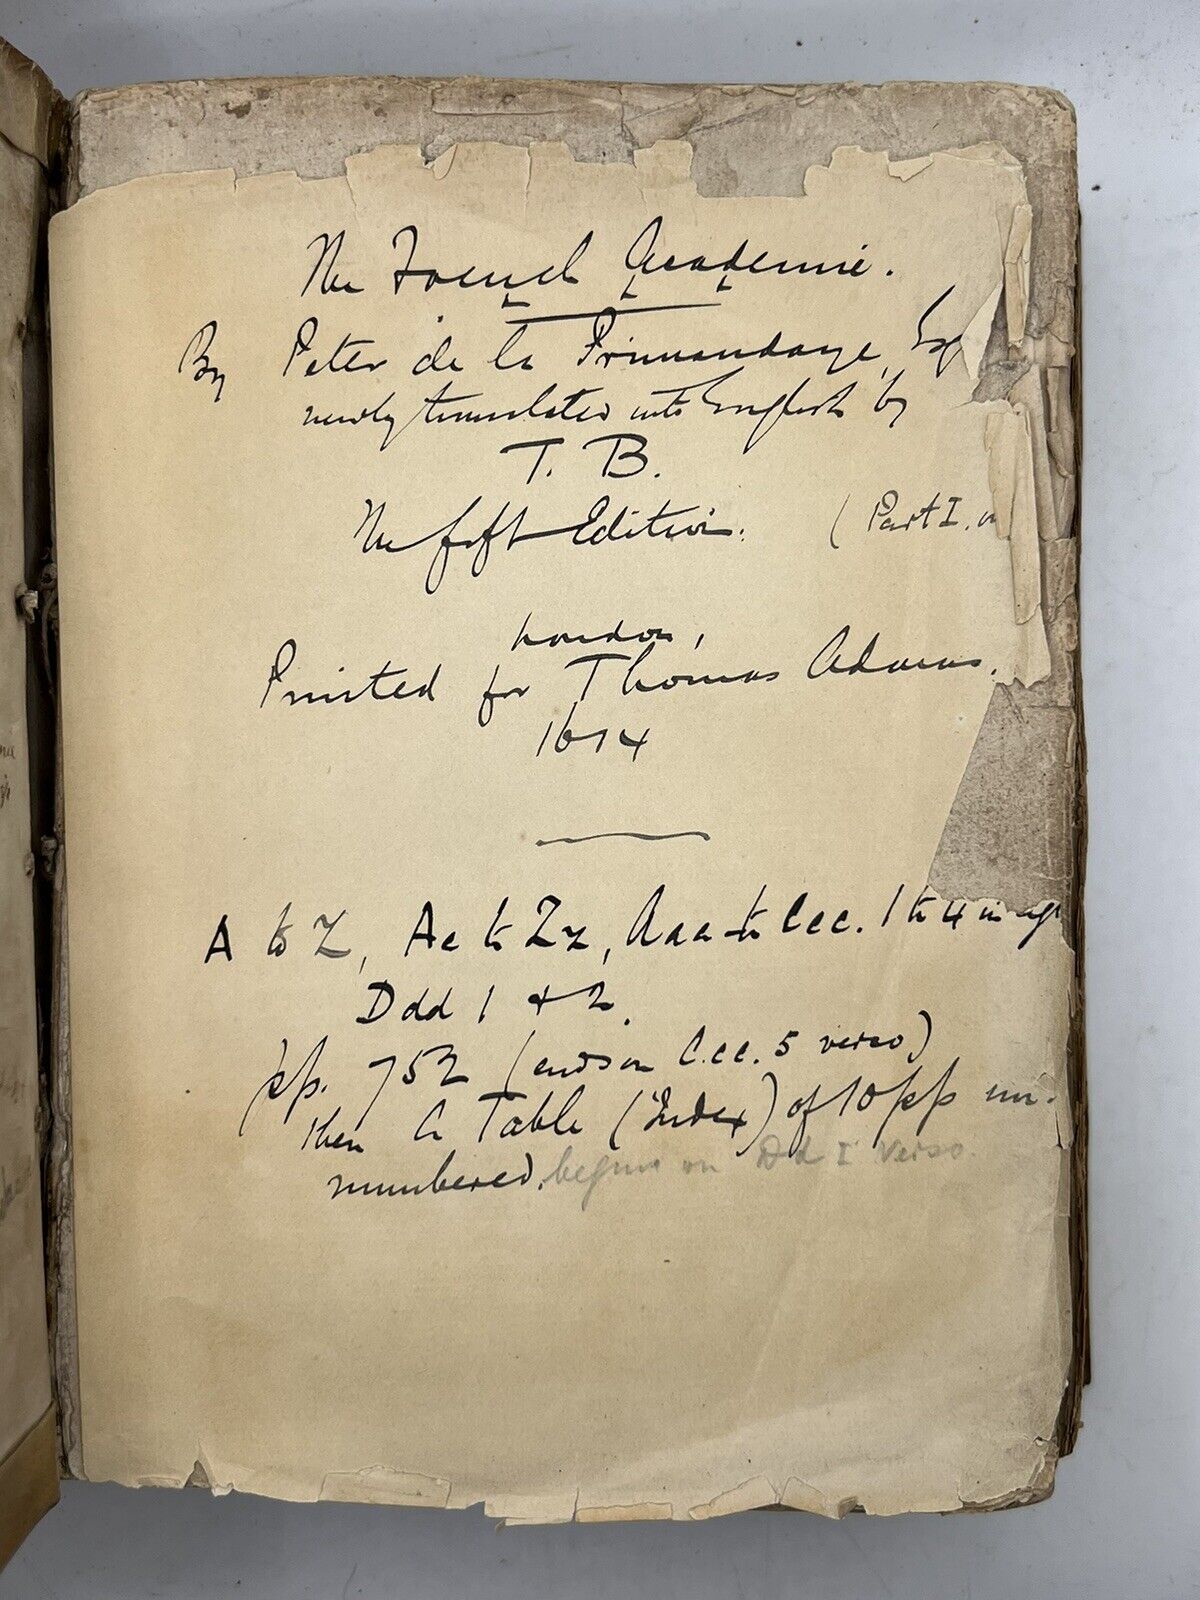 The French Academie.
By Peter de la Primaudaye, Esq
newly translated into English by
T. B.
The fift Edition. (Part I. on
London,
Printed for Thomas Adams.
1614
A to Z, Aa to Zz, Aaa to Ccc. 1 to 4 in
Ddd 1 & 2.
pp. 752 (ends on Ccc. 5 verso)
then A Table (Index) of 10 pp un-
numbered. begins on Ddd I verso.